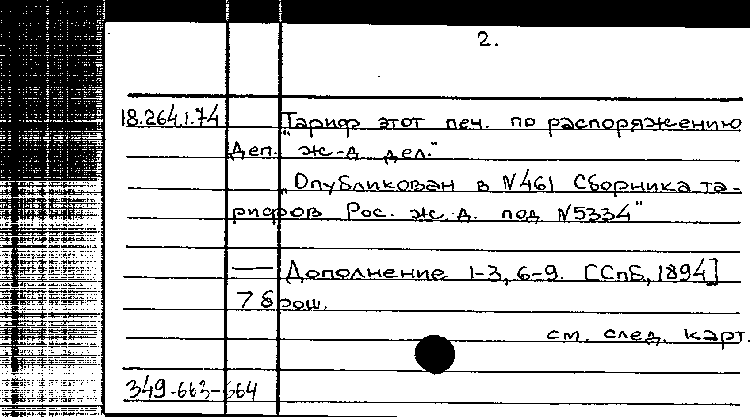 2.
18.264.1.74 "Тариф этот печ. по распоряжению
Деп. ж-д дел."
"Опубликован в N461 Сборника та-
рифов Рос. ж.д. под N5334"
— Дополнение 1-3, 6-9. [СпБ, 1894]
7 брош.
см. след. карт.
349-663-664